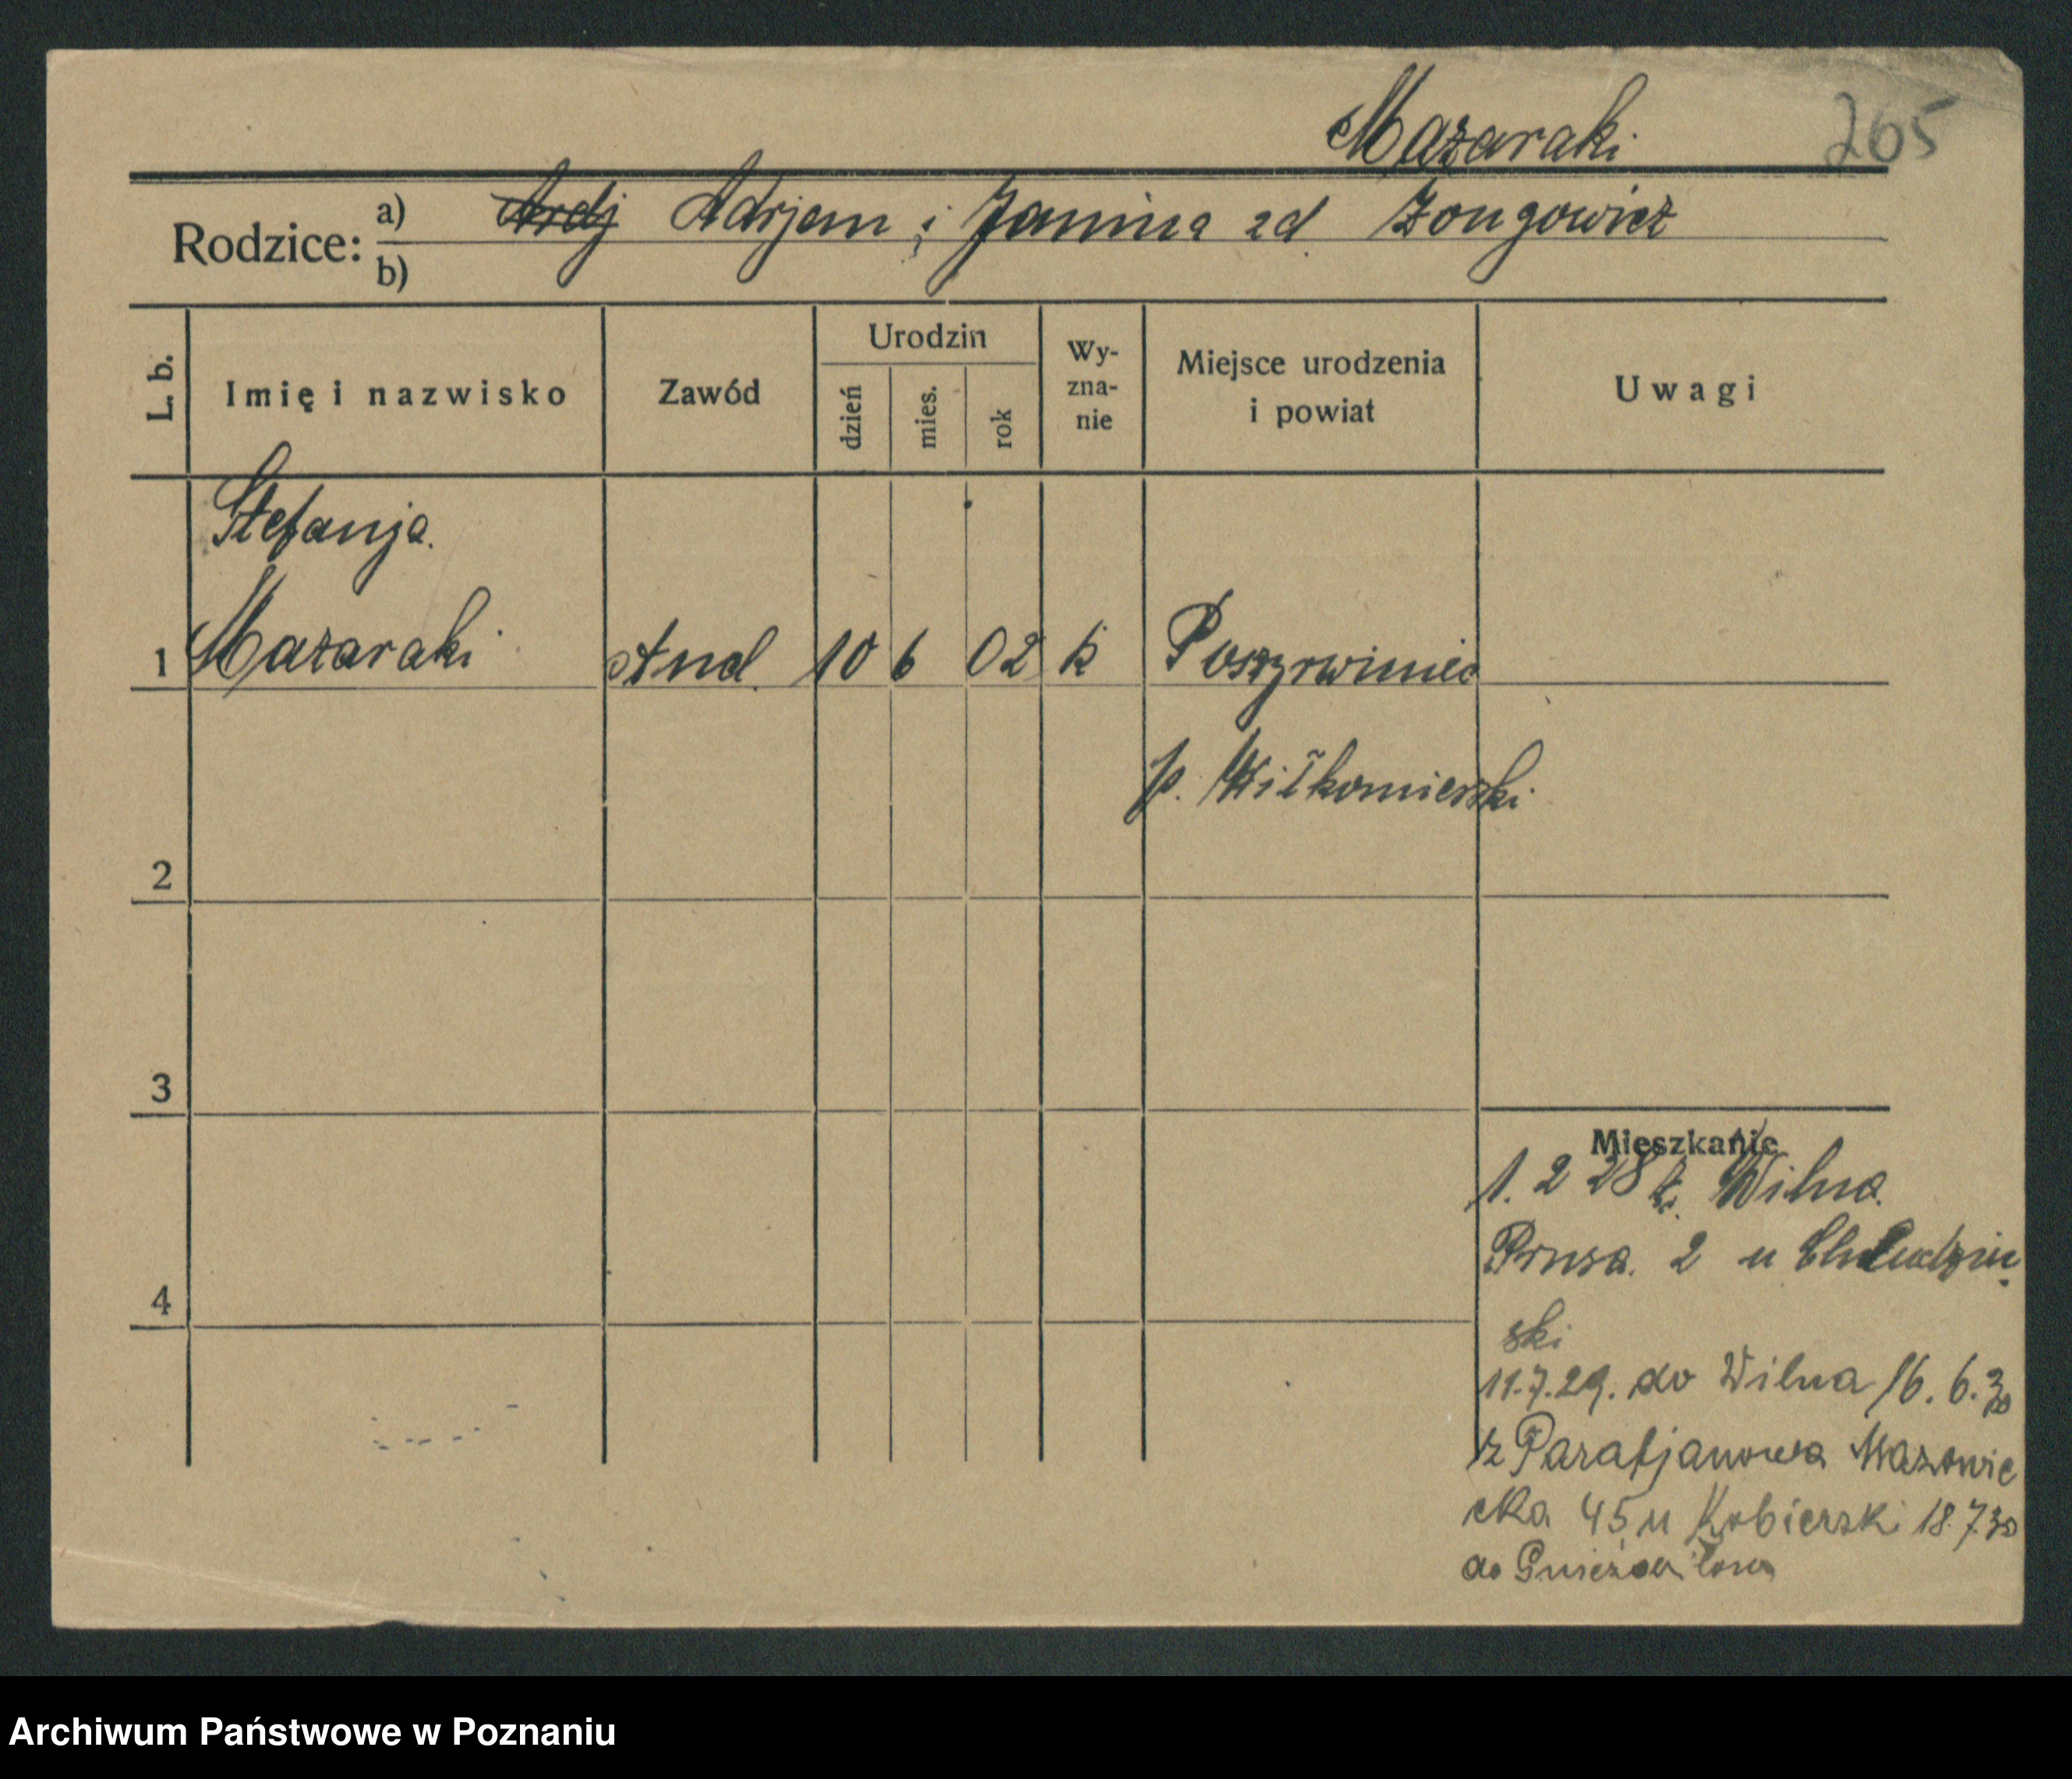 Mazaraki 265
Rodzice: a) Ardj Adrjan i Janina zd Zongowicz
b)
L. b. Imię i nazwisko Zawód Urodzin dzień mies. rok Wyznanie Miejsce urodzenia i powiat Uwagi
Stefanja
1 Mazaraki stud. 10 6 02 k
p. Wiłkomierski
2
3
Mieszkanie
1. 2 28 z Wilna.
Prusa 2 u
4
ski
11.7.29. do Wilna 16.6.30
z Parafjanowa Mazowie
cka 45 u Kobierski 18.7.30
do
Archiwum Państwowe w Poznaniu